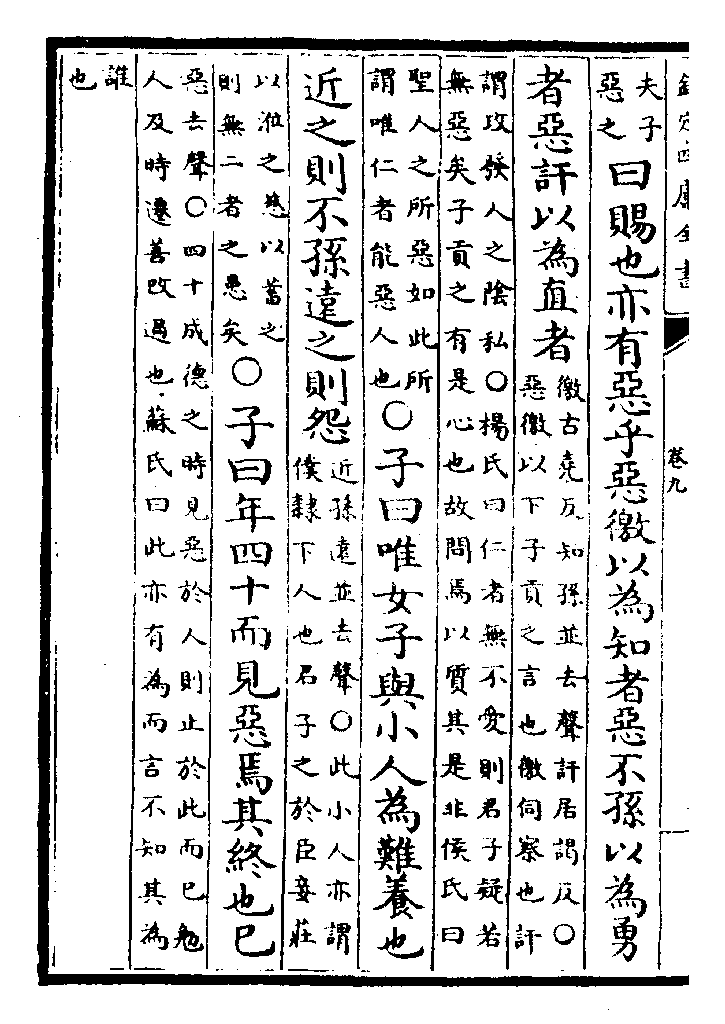 欽定四庫全書
卷九
夫子
惡之
曰賜也亦有惡乎惡徼以為知者惡不孫以為勇
者惡訐以為直者
徼古堯反知孫並去聲訐居謁反○
惡徼以下子貢之言也徼伺察也訐
謂攻發人之陰私○楊氏曰仁者無不愛則君子疑若
無惡矣子貢之有是心也故問焉以質其是非侯氏曰
聖人之所惡如此所
謂唯仁者能惡人也
○子曰唯女子與小人為難養也
近之則不孫遠之則怨
近孫遠並去聲○此小人亦謂
僕隷下人也君子之於臣妾莊
以涖之慈以蓄之
則無二者之患矣
○子曰年四十而見惡焉其終也已
惡去聲○四十成德之時見惡於人則止於此而已勉
人及時遷善改過也蘇氏曰此亦有為而言不知其為
誰
也